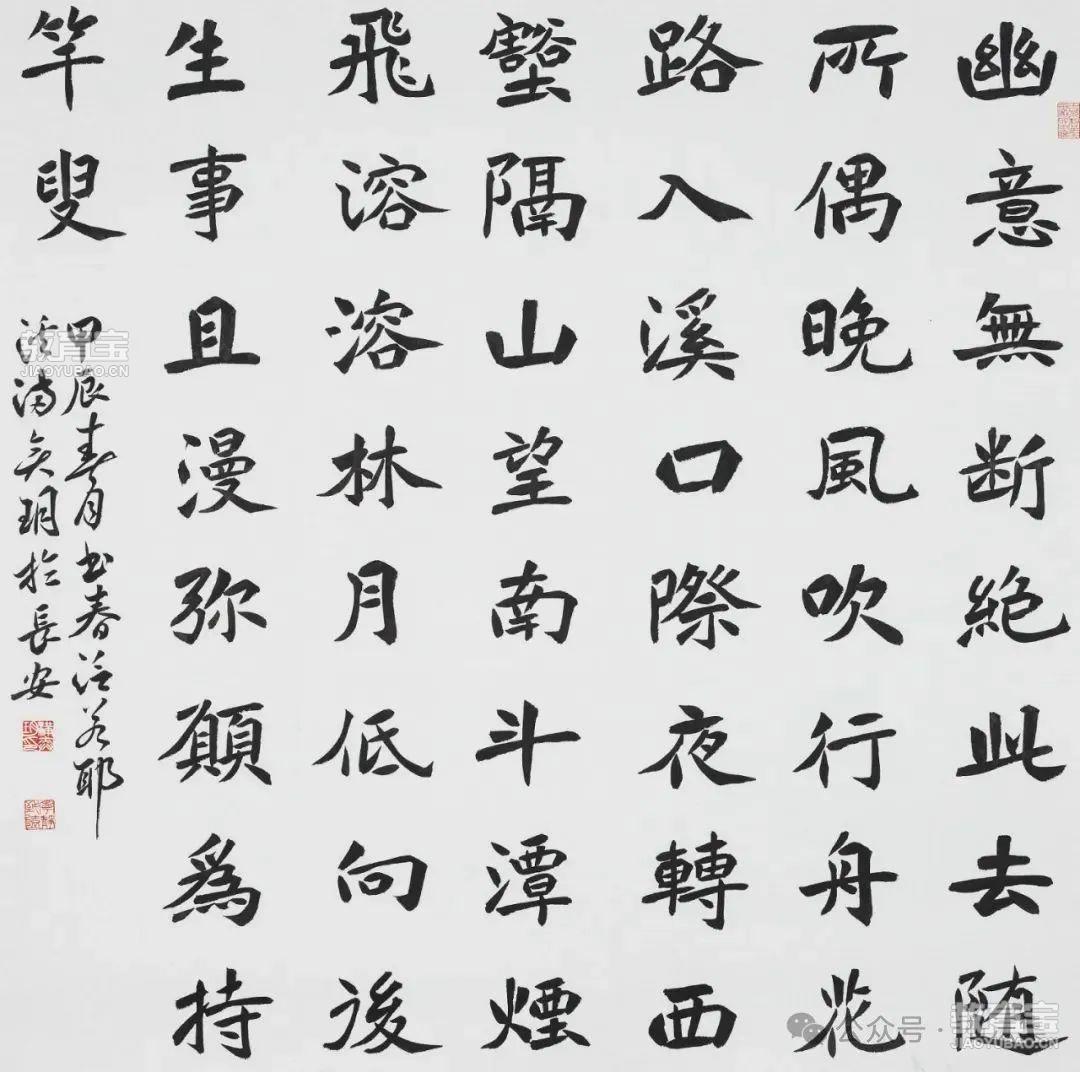 幽意無断絶此去随
所偶晚風吹行舟花
路入溪口際夜轉西
壑隔山望南斗潭煙
飛溶溶林月低向後
生事且漫弥顛為持
竿叟
甲辰春月书春泛若耶
溪 於長安
教育宝
JIAOYUBAO.CN
公众号·
教育宝
JIAOYUBAO.CN